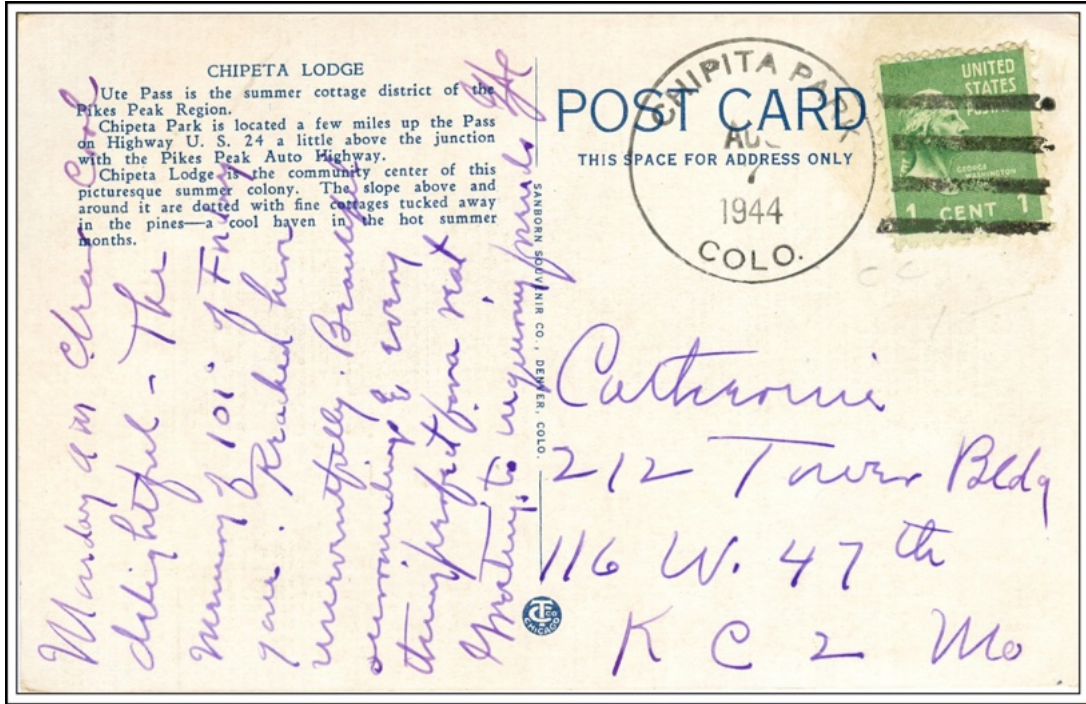 CHIPETA LODGE
Ute Pass is the summer cottage district of the
Pikes Peak Region.
Chipeta Park is located a few miles up the Pass
on Highway U. S. 24 a little above the junction
with the Pikes Peak Auto Highway.
Chipeta Lodge is the community center of this
picturesque summer colony. The slope above and
around it are dotted with fine cottages tucked away
in the pines—a cool haven in the hot summer
months.
Monday am Clear Cool
delightful - The
memory of 101° of Friday
gone. Reached here
uneventfully. Beautiful
surroundings & every
thing perfect for a rest
to
SANBORN SOUVENIR CO., DENVER, COLO.
POST CARD
THIS SPACE FOR ADDRESS ONLY
CHIPITA PARK
AUG
7
1944
COLO.
UNITED
STATES
POSTAGE
GEORGE
WASHINGTON
1 CENT 1
Catherine
212 Tower Bldg
116 W. 47th
K C 2 Mo
CTCO
CHICAGO